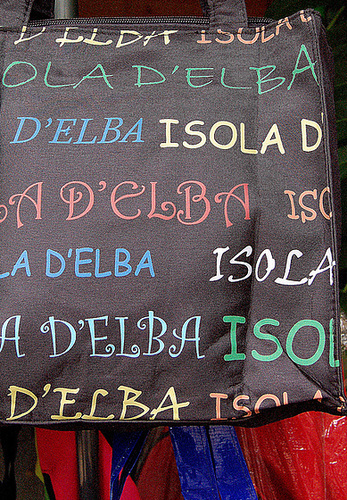 D'ELBA ISOLA
OLA D'ELBA
D'ELBA ISOLA D'
A D'ELBA ISO
LA D'ELBA ISOLA
A D'ELBA ISOL
D'ELBA ISOLA